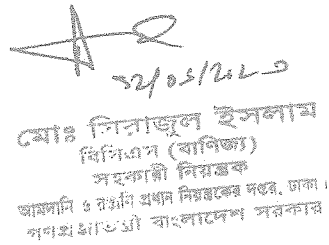 ১২/০১/২০২৩
মোঃ সিরাজুল ইসলাম
বিসিএস (বাণিজ্য)
সহকারী নিয়ন্ত্রক
আমদানি ও রপ্তানি প্রধান নিয়ন্ত্রকের দপ্তর, ঢাকা।
গণপ্রজাতন্ত্রী বাংলাদেশ সরকার